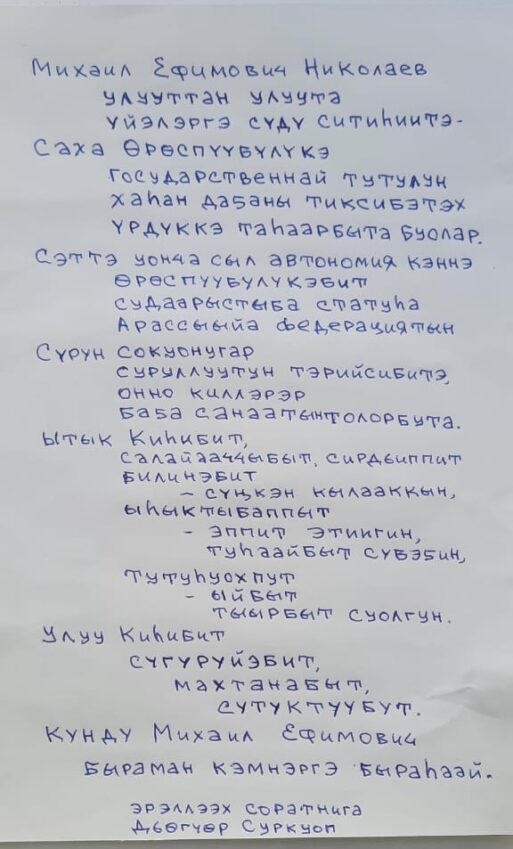 Михаил Ефимович Николаев
улууттан улуута
үйэлэргэ сүдү ситиһиитэ-
Саха Өрөспүүбүлүкэ
государственнай тутулун
хаһан даҕаны тиксибэтэх
үрдүккэ таһаарбыта буолар.
Сэттэ уонча сыл автономия кэннэ
өрөспүүбүлүкэбит
судаарыстыба статуһа
Арассыыйа федерациятын
Сүрүн сокуонугар
суруллуутун тэрийсибитэ,
онно киллэрэр
баҕа санаатын толорбута.
Ытык Киһибит,
салайааччыбыт, сирдьиппит
билинэбит
- сүҥкэн кылааккын,
ыһыктыбаппыт
- эппит этиигин,
туһаайбыт сүбэҕин,
тутуһуохпут
- ыйбыт
тыырбыт суолгун.
Улуу Киһибит
сүгүрүйэбит,
махтанабыт,
сүтүктүүбүт.
Күндү Михаил Ефимович
быраман кэмнэргэ быраһаай.
эрэллээх соратнига
Дьөгүөр Суркуоп